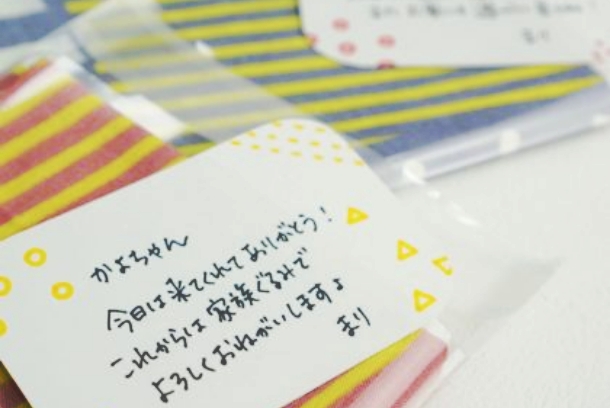 かよちゃん
今日は来てくれてありがとう！
これからは家族ぐるみで
よろしくおねがいします♪
まり